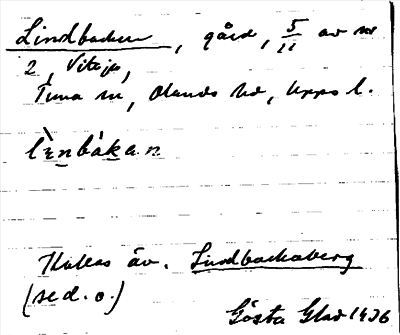 Lindbacken, gård, 5/11 av nr
2, Vitsjö,
Tuna sn, Olands hd, Upps l.
lìnbákan
Kallas äv. Lindbackaberg
(se d. o.)
Gösta Glad 1936